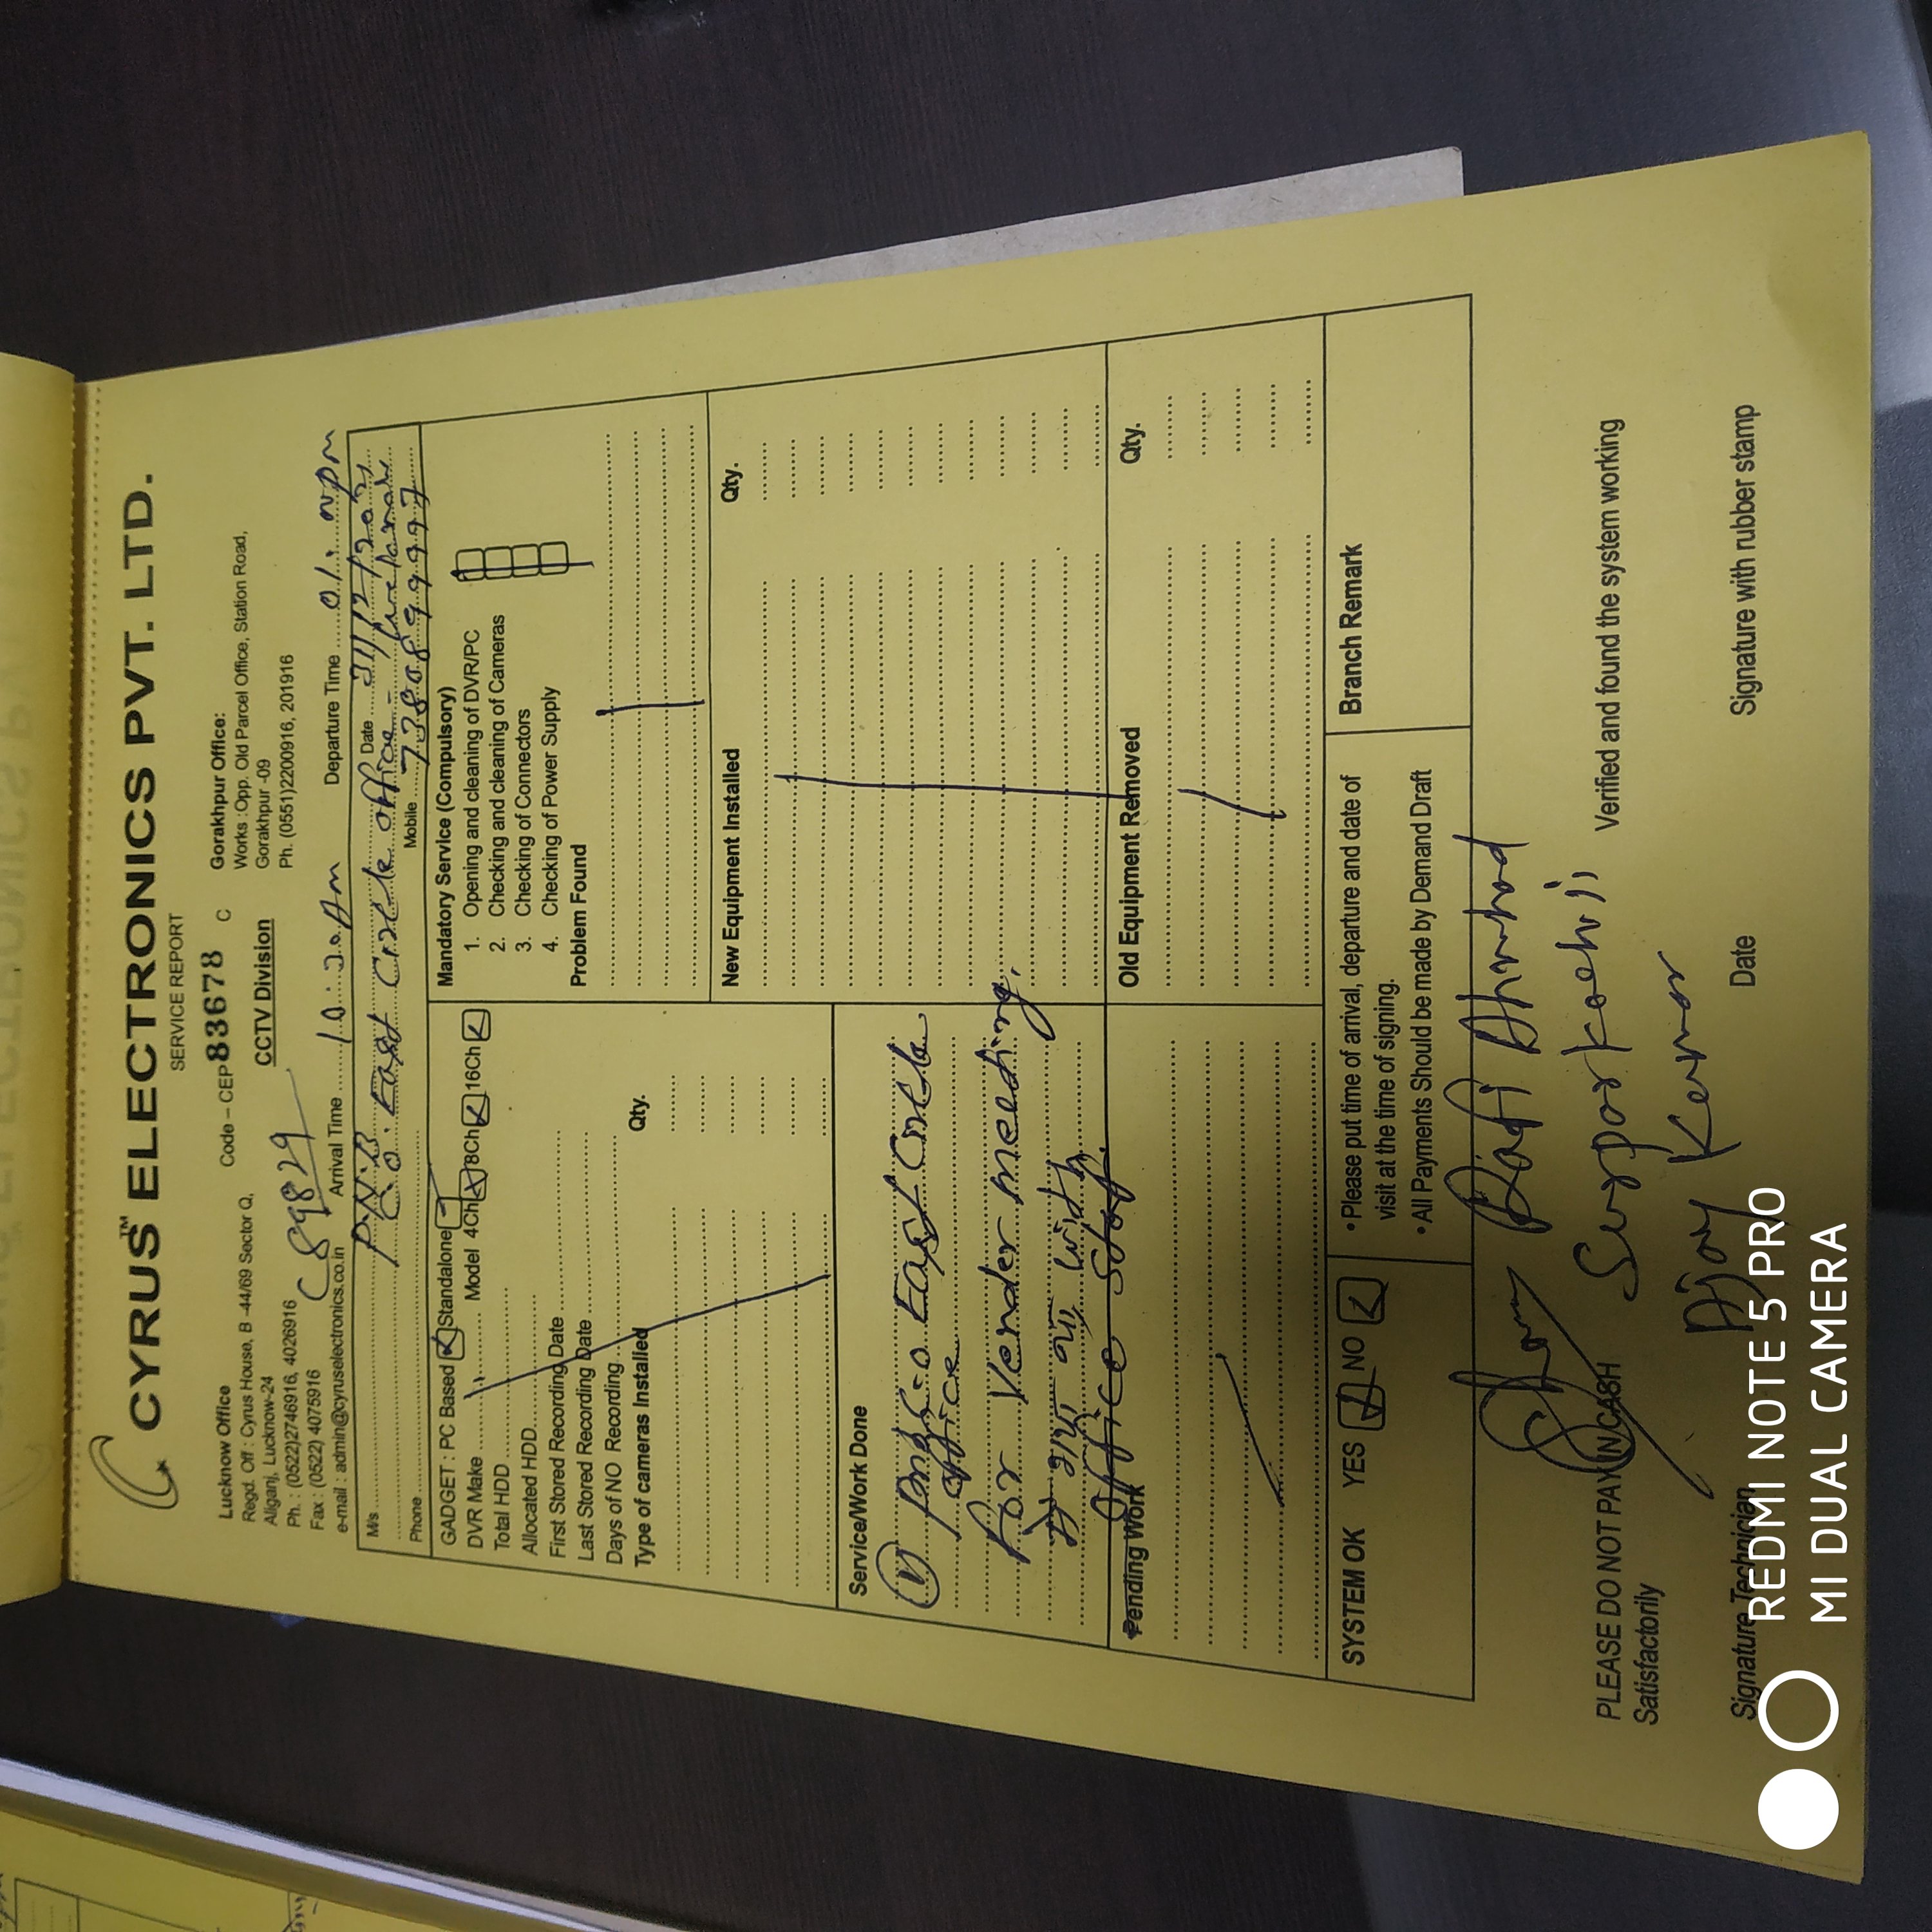 CYRUS™ ELECTRONICS PVT. LTD.
SERVICE REPORT
Lucknow Office
Regd. Off : Cyrus House, B -44/69 Sector Q,
Aliganj, Lucknow-24
Ph. : (0522)2746916, 4026916
Fax : (0522) 4075916
e-mail : admin@cyruselectronics.co.in
Code – CEP 83678 C
CCTV Division
C89829
Gorakhpur Office:
Works :Opp. Old Parcel Office, Station Road,
Gorakhpur -09
Ph. (0551)2200916, 201916
Arrival Time 10:30 Am Departure Time 01:00 pm
M/s P.N.B Date 31/12/2021
C.O. East Circle office - Lucknow
Phone Mobile 7380899997
GADGET : PC Based Standalone
DVR Make Model 4Ch 8Ch 16Ch
Total HDD
Allocated HDD
First Stored Recording Date
Last Stored Recording Date
Days of NO Recording
Type of cameras Installed Qty.
Mandatory Service (Compulsory)
1. Opening and cleaning of DVR/PC
2. Checking and cleaning of Cameras
3. Checking of Connectors
4. Checking of Power Supply
Problem Found
New Equipment Installed Qty.
Service/Work Done
① pnb C-o East Circle
office
for Vender meeting.
में गया था with
office staf.
Pending Work
Old Equipment Removed Qty.
SYSTEM OK YES NO
• Please put time of arrival, departure and date of
visit at the time of signing.
• All Payments Should be made by Demand Draft
Branch Remark
Rafi Ahmhad
PLEASE DO NOT PAY IN CASH Verified and found the system working
Satisfactorily
Ajay Kumar
Signature Technician Date Signature with rubber stamp
REDMI NOTE 5 PRO
MI DUAL CAMERA